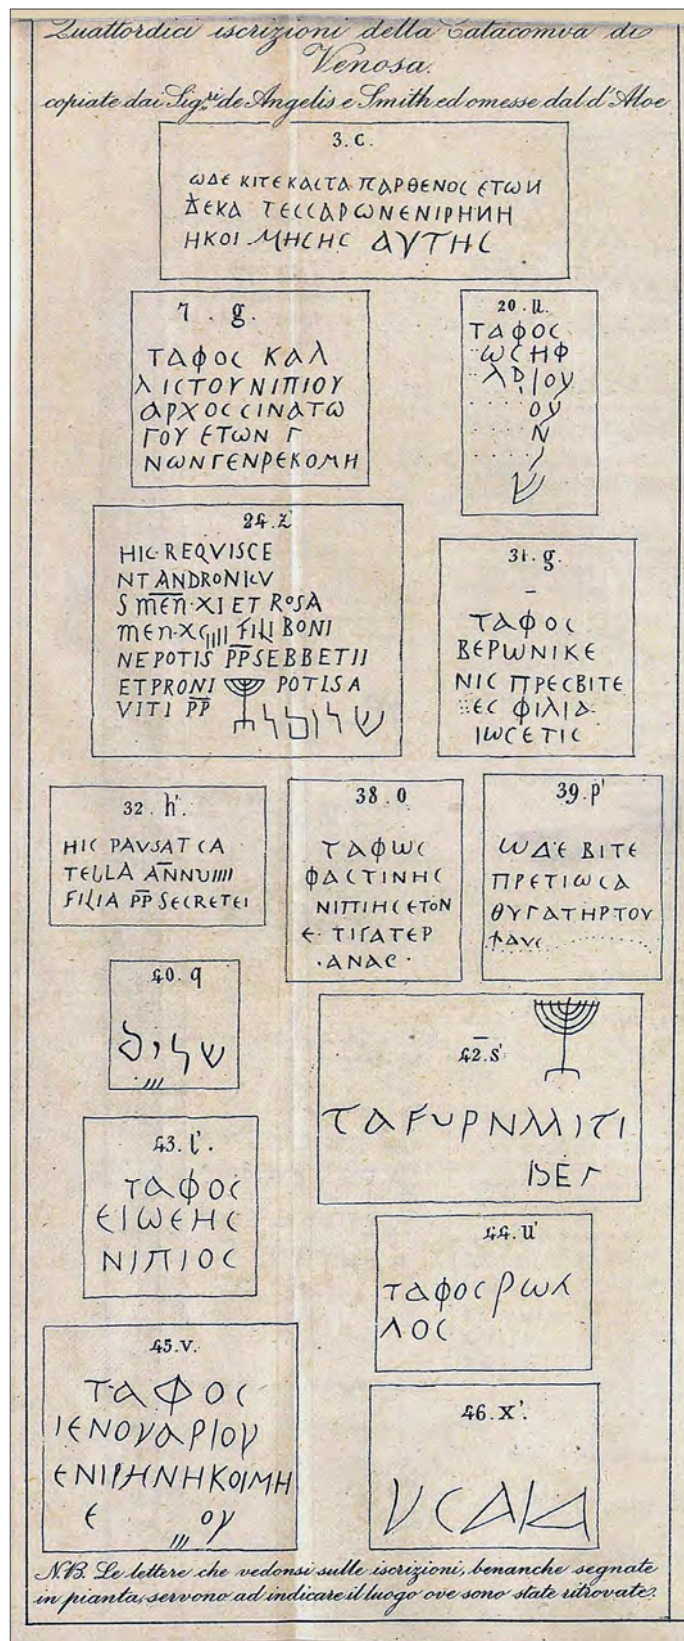 Quattordici iscrizioni della Catacomva di
Venosa.
copiate dai Sig.ri de Angelis e Smith ed omesse dal d'Aloe
3. c.
ωΔΕ ΚΙΤΕ ΚΑCΤΑ ΠΑΡΘΕΝΟC ΕΤωΝ
ΔΕΚΑ ΤΕCCΑΡωΝ ΕΝΙΡΗΝΗ
ΗΚΟΙΜΗCΗC ΑΥΤΗC
7. g.
ΤΑΦΟC ΚΑΛ
ΛΙCΤΟΥ ΝΙΠΙΟΥ
ΑΡΧΟCCΙΝΑΤω
ΓΟΥ ΕΤωΝ Γ
ΝωΝ ΓΕΝΡΕΚΟΜΗ
20. u.
ΤΑΦΟC
ωCΗΦ
ΟΥ
Ν
ש
24. z'
HIC REQVISCE
NT ANDRONICV
S MEN·XI ET ROSA
MEN·XCIIII FILI BONI
NEPOTIS PP SEBBETII
ET PRONI POTIS A
VITI PP
31. g.
ΤΑΦΟC
ΒΕΡωΝΙΚΕ
ΝΙC ΠΡΕCΒΙΤΕ
ΕC ΦΙΛΙΑ
ΙωCΕΤΙC
32. h'.
HIC PAVSAT CA
TELLA ANNVIIII
FILIA PP SECRETEI
38. o
ΤΑΦωC
ΦΑCΤΙΝΗC
ΝΙΠΙΗC ΕΤΟΝ
Ε· ΤΙΓΑΤΕΡ
·ΑΝΑC·
39. p'
ωΔΕ ΒΙΤΕ
ΠΡΕΤΙωCΑ
ΘΥΓΑΤΗΡ ΤΟΥ
ΦΑΥC
40. q
42. s'
ΤΑFΥΡΝΛΛΙΤΙ
ΒΕΓ
43. t'.
ΤΑΦΟC
ΕΙωCΗC
ΝΙΠΙΟC
44. u'
ΤΑΦΟC ΡωΛ
ΛΟC
45. v.
ΤΑΦΟC
ΙΕΝΟΥΑΡΙΟΥ
ΕΝΙΡΗΝΗ ΚΟΙΜΗ
Ε ΟΥ
46. x'.
N.B. Le lettere che vedonsi sulle iscrizioni, benanche segnate
in pianta, servono ad indicare il luogo ove sono state ritrovate.